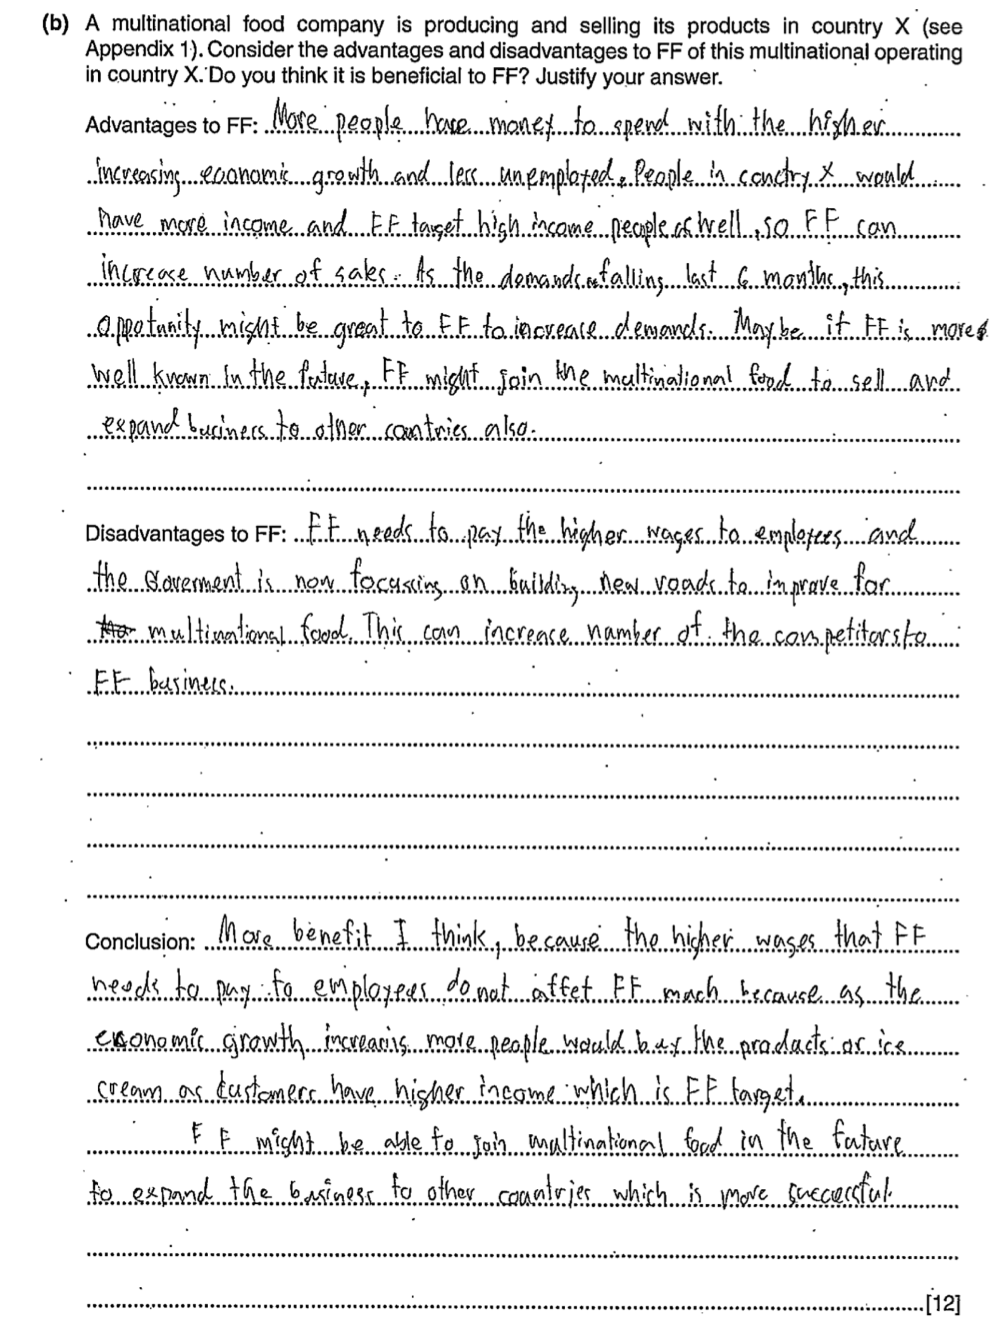 (b) A multinational food company is producing and selling its products in country X (see
Appendix 1). Consider the advantages and disadvantages to FF of this multinational operating
in country X. Do you think it is beneficial to FF? Justify your answer.
Advantages to FF: More people have money to spend with the higher
increasing economic growth and less unemployed. People in conctry X would
have more income and FF target high income people as well, so FF can
increase number of sales. As the demands falling last 6 months, this
oppotunity might be great to FF to increase demands. Maybe if FF is more
well known in the future, FF might join the multinational food to sell and
expand business to other contries also.
Disadvantages to FF: FF needs to pay the higher wages to employees and
the Goverment is now focussing on building new roads to improve for
multinational food. This can increase number of the competitors to
FF business.
Conclusion: More benefit I think, because the higher wages that FF
needs to pay to employees do not affet FF much because as the
economic growth increasing more people would buy the products or ice
cream as customers have higher income which is FF target.
FF might be able to join multinational food in the future
to expand the business to other countries which is more successful.
[12]